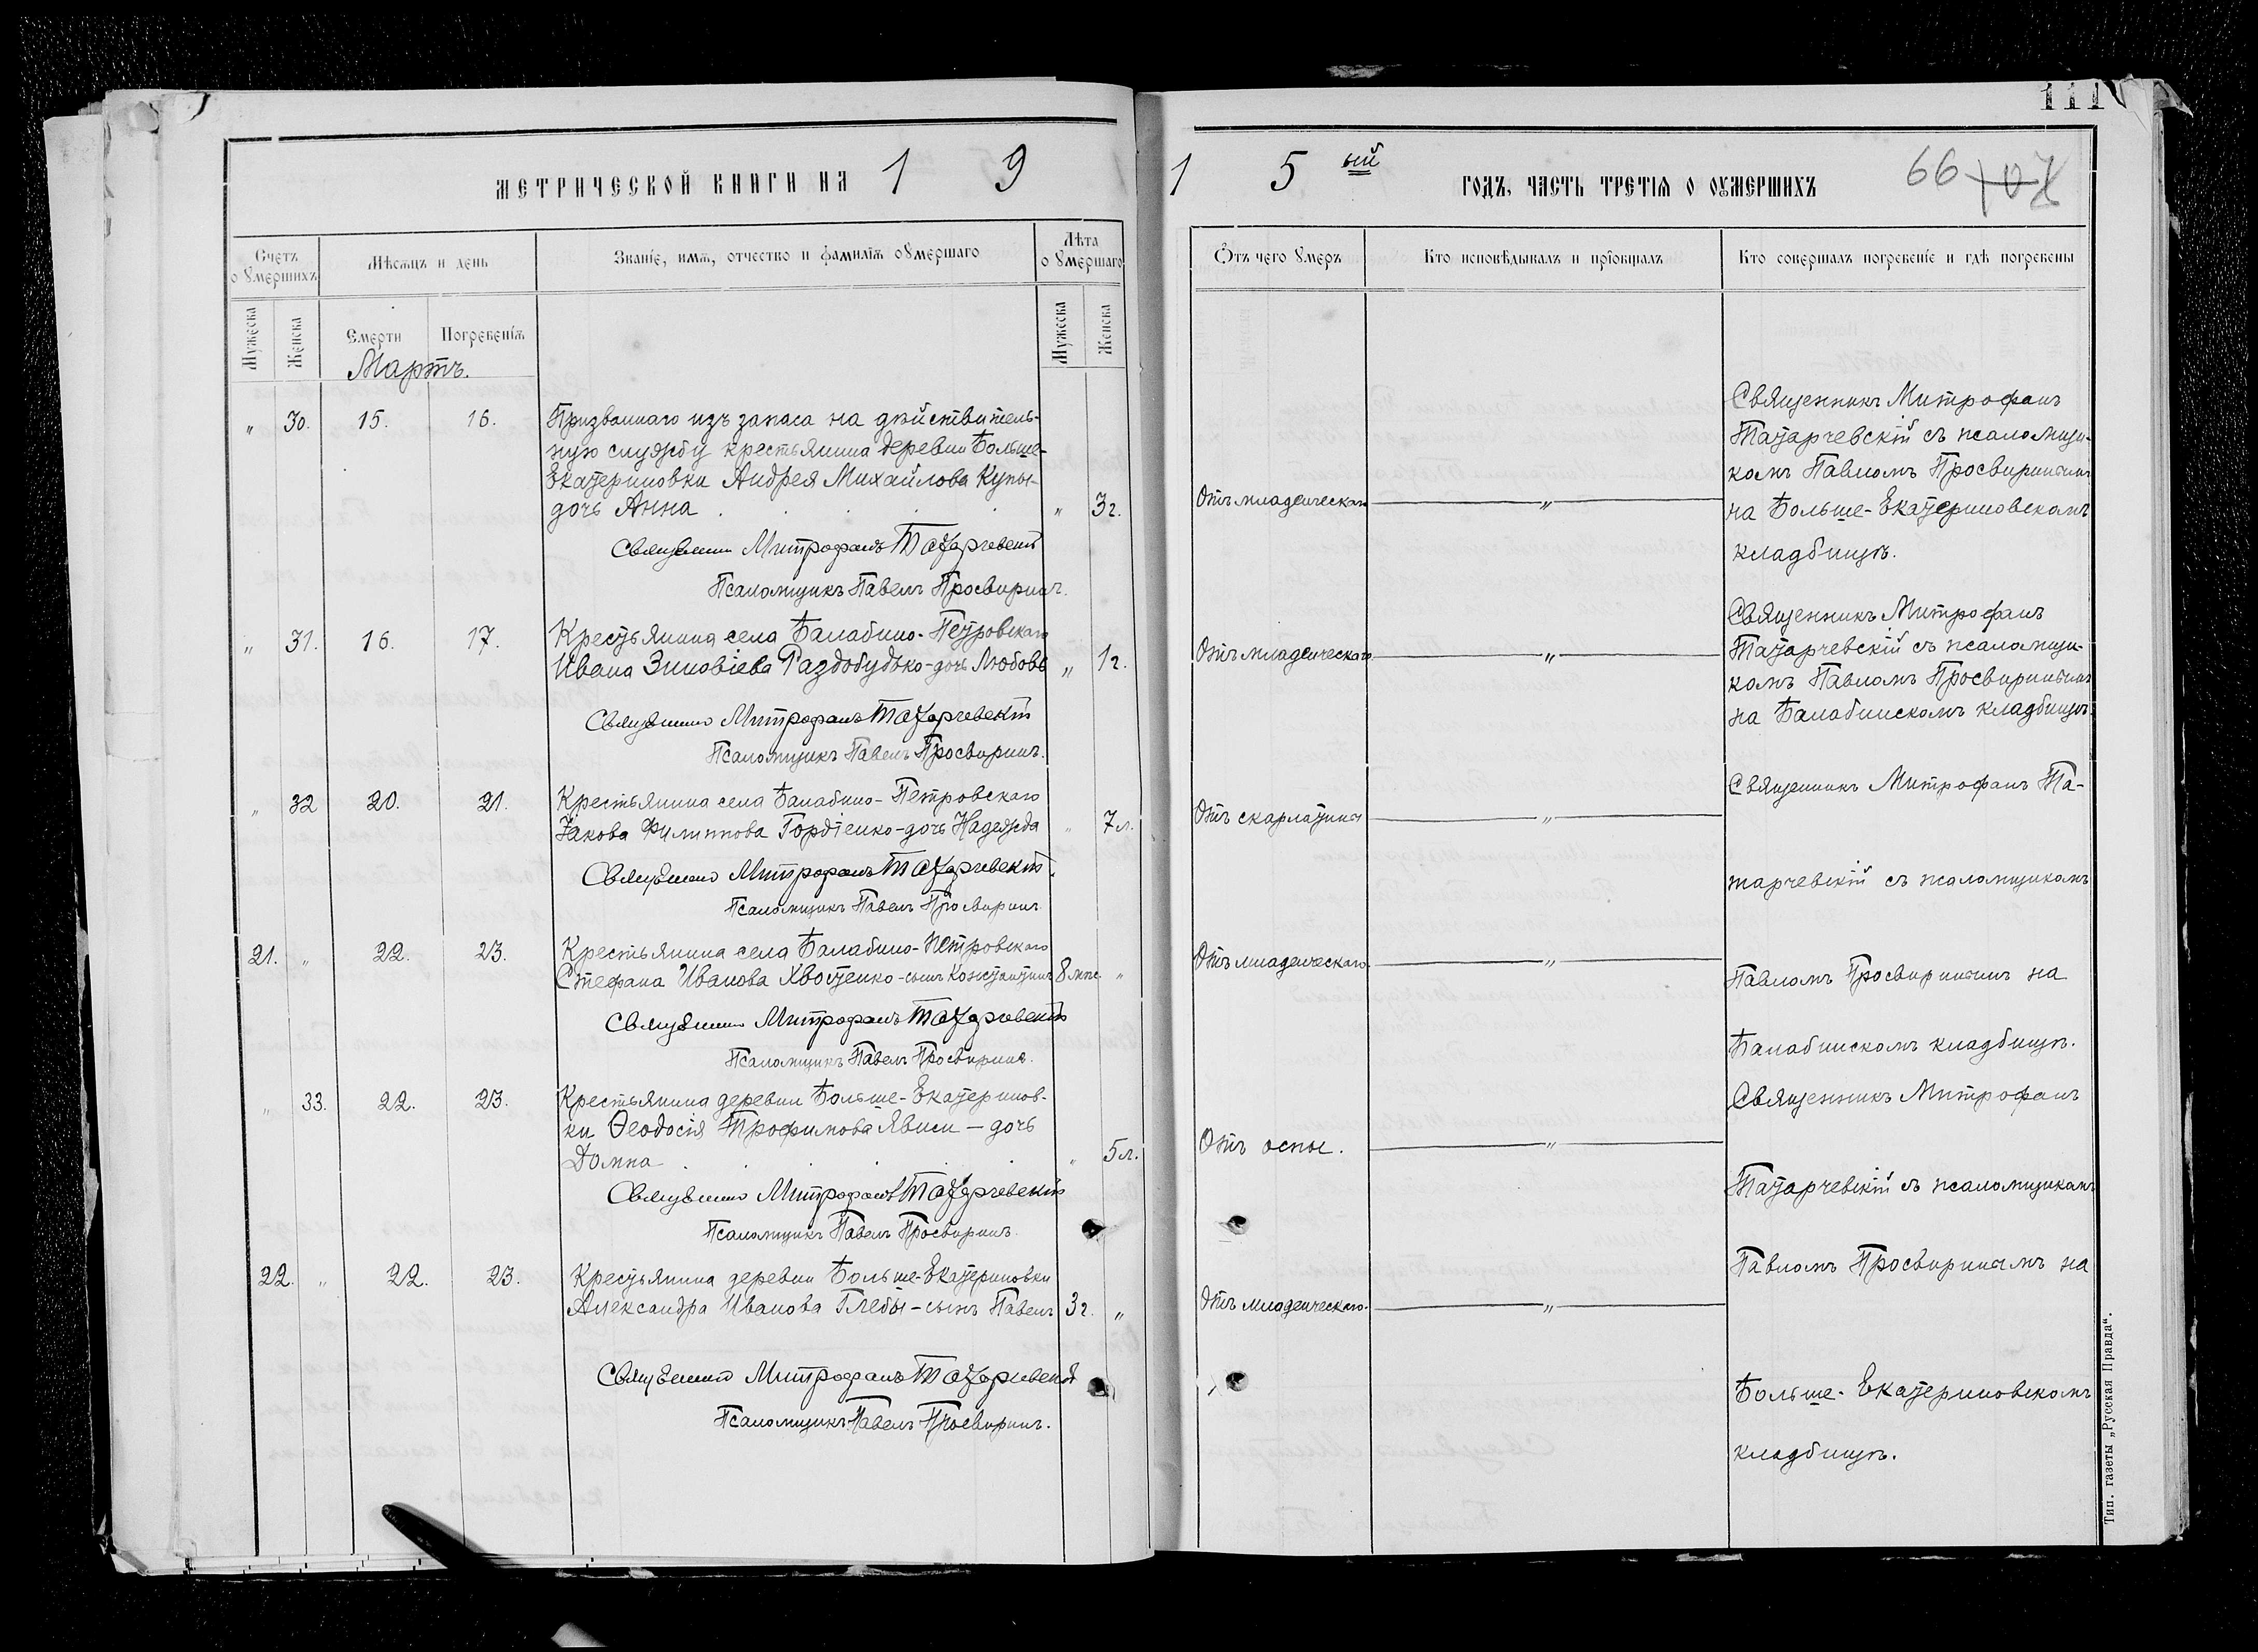 111
МЕТРИЧЕСКОЙ КНИГИ НА 1 9
1 5 ый ГОДЪ, ЧАСТЬ ТРЕТІЯ О ОУМЕРШИХЪ 66
Счетъ оумершихъ
Мѣсяцъ и день
Званіе, имя, отчество и фамилія оумершаго
Лѣта оумершаго
Отъ чего умеръ
Кто исповѣдывалъ и пріобщалъ
Кто совершалъ погребеніе и гдѣ погребены
Мужеска
Женска
Смерти
Погребенія
Мужеска
Женска
Мартъ.
„ 30. 15. 16. Призваннаго изъ запаса на дѣйствитель-
ную службу крестьянина деревни Больше-
Екатериновки Андрея Михайлова Купы-
дочь Анна . . . . „ 3 г. Отъ младенческаго „
Священникъ Митрофанъ Татарчевскій
Псаломщикъ Павелъ Просвиринъ.
Священникъ Митрофанъ
Татарчевскій съ псаломщи-
комъ Павломъ Просвиринымъ
на Больше-Екатериновскомъ
кладбищѣ.
„ 31. 16. 17. Крестьянина села Балабино-Петровскаго
Ивана Зиновіева Раздобудько-дочь Любовь „ 1 г. Отъ младенческаго „
Священникъ Митрофанъ Татарчевскій
Псаломщикъ Павелъ Просвиринъ.
Священникъ Митрофанъ
Татарчевскій съ псаломщи-
комъ Павломъ Просвиринымъ
на Балабинскомъ кладбищѣ.
„ 32 20. 21. Крестьянина села Балабино-Петровскаго
Іакова Филиппова Гордіенко-дочь Надежда „ 7 л. Отъ скарлатины „
Священникъ Митрофанъ Татарчевскій.
Псаломщикъ Павелъ Просвиринъ
Священникъ Митрофанъ Та-
тарчевскій съ псаломщикомъ
21. „ 22. 23. Крестьянина села Балабино-Петровскаго
Стефана Иванова Хвостенко-сынъ Константинъ 8 мѣс. „ Отъ младенческаго. „
Священникъ Митрофанъ Татарчевскій
Псаломщикъ Павелъ Просвиринъ.
Павломъ Просвиринымъ на
Балабинскомъ кладбищѣ.
„ 33. 22. 23. Крестьянина деревни Больше-Екатеринов-
ки Ѳеодосія Трофимова Явиси — дочь
Домна . . . . . „ 5 л. Отъ оспы. „
Священникъ Митрофанъ Татарчевскій
Псаломщикъ Павелъ Просвиринъ.
Священникъ Митрофанъ
Татарчевскій съ псаломщикомъ
22. „ 22. 23. Крестьянина деревни Больше-Екатериновки
Александра Иванова Глебы-сынъ Павелъ 3 г. „ Отъ младенческаго. „
Священникъ Митрофанъ Татарчевскій
Псаломщикъ Павелъ Просвиринъ.
Павломъ Просвиринымъ на
Больше-Екатериновскомъ
кладбищѣ.
Тип. газеты „Русская Правда“.